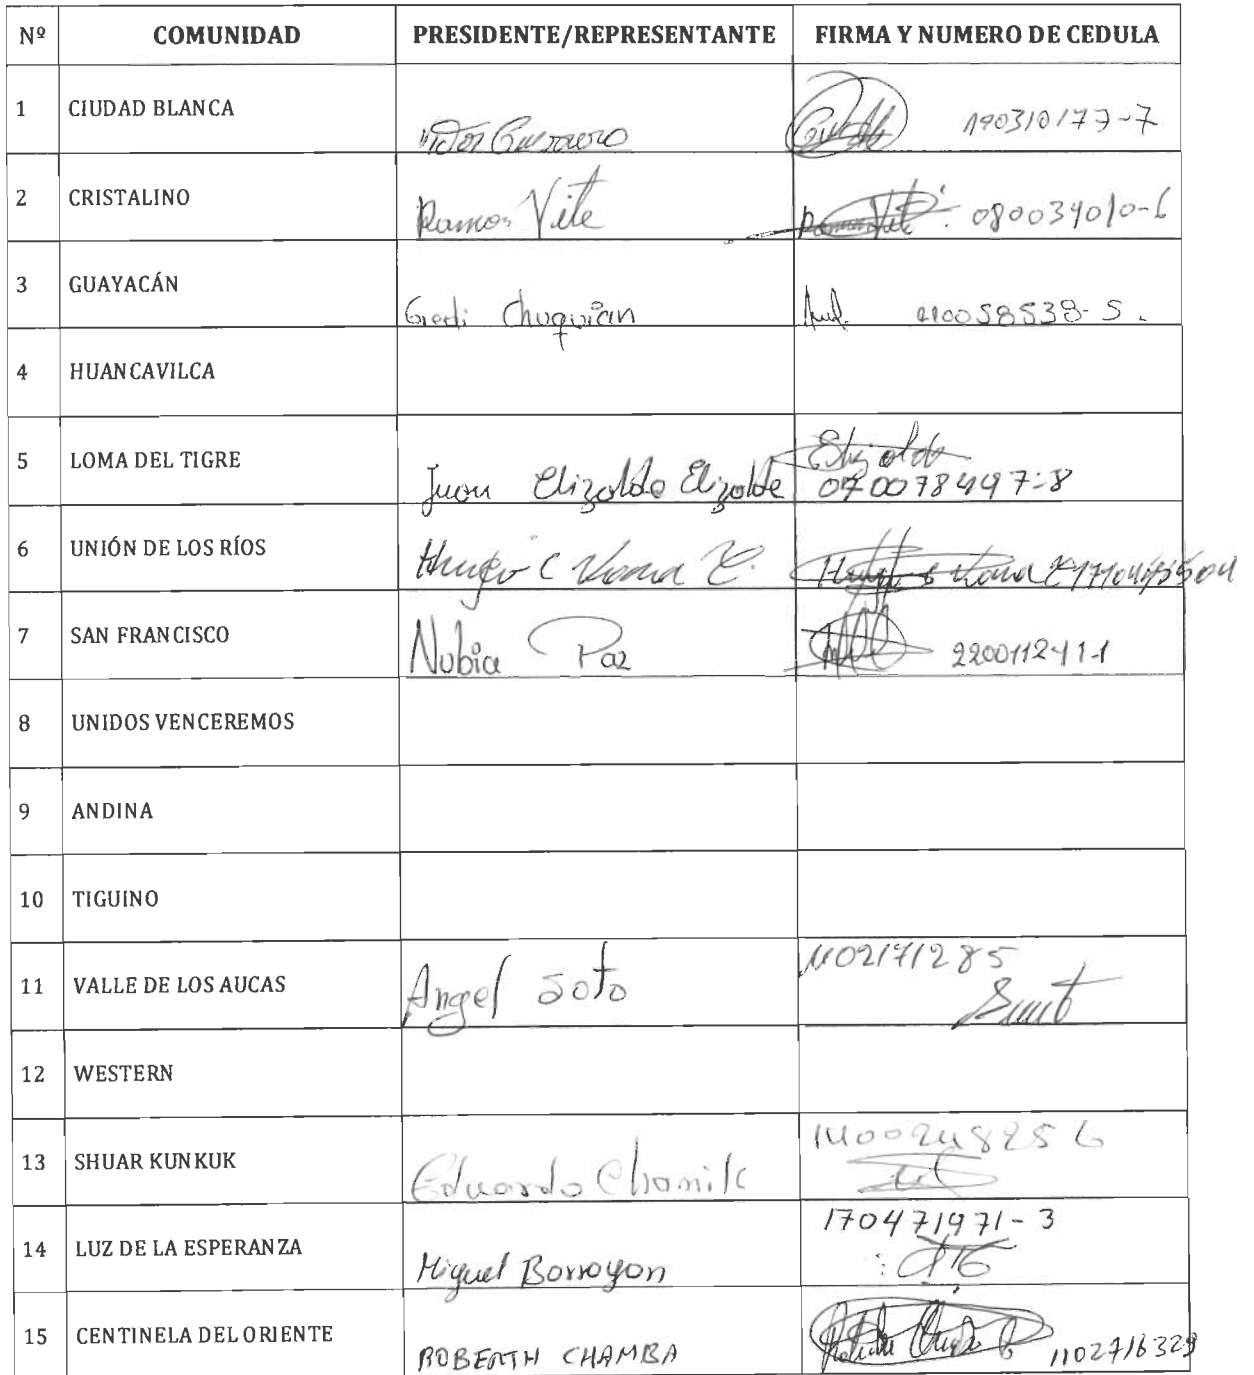 Nº COMUNIDAD PRESIDENTE/REPRESENTANTE FIRMA Y NUMERO DE CEDULA
1 CIUDAD BLANCA Victor Guerrero 190310177-7
2 CRISTALINO Ramon Vite 080034010-6
3 GUAYACÁN Chuquian 210058538-5.
4 HUANCAVILCA
5 LOMA DEL TIGRE Juan Elizalde Elizalde Elizalde
070078497-8
6 UNIÓN DE LOS RÍOS Hugo C
7 SAN FRANCISCO Nubia Paz 220011241-1
8 UNIDOS VENCEREMOS
9 ANDINA
10 TIGUINO
11 VALLE DE LOS AUCAS Angel Soto 1102171285
12 WESTERN
13 SHUAR KUNKUK Eduardo Chamik 1400248256
14 LUZ DE LA ESPERANZA Miguel Borroyon 170471971-3
15 CENTINELA DEL ORIENTE ROBERTH CHAMBA 1102716329